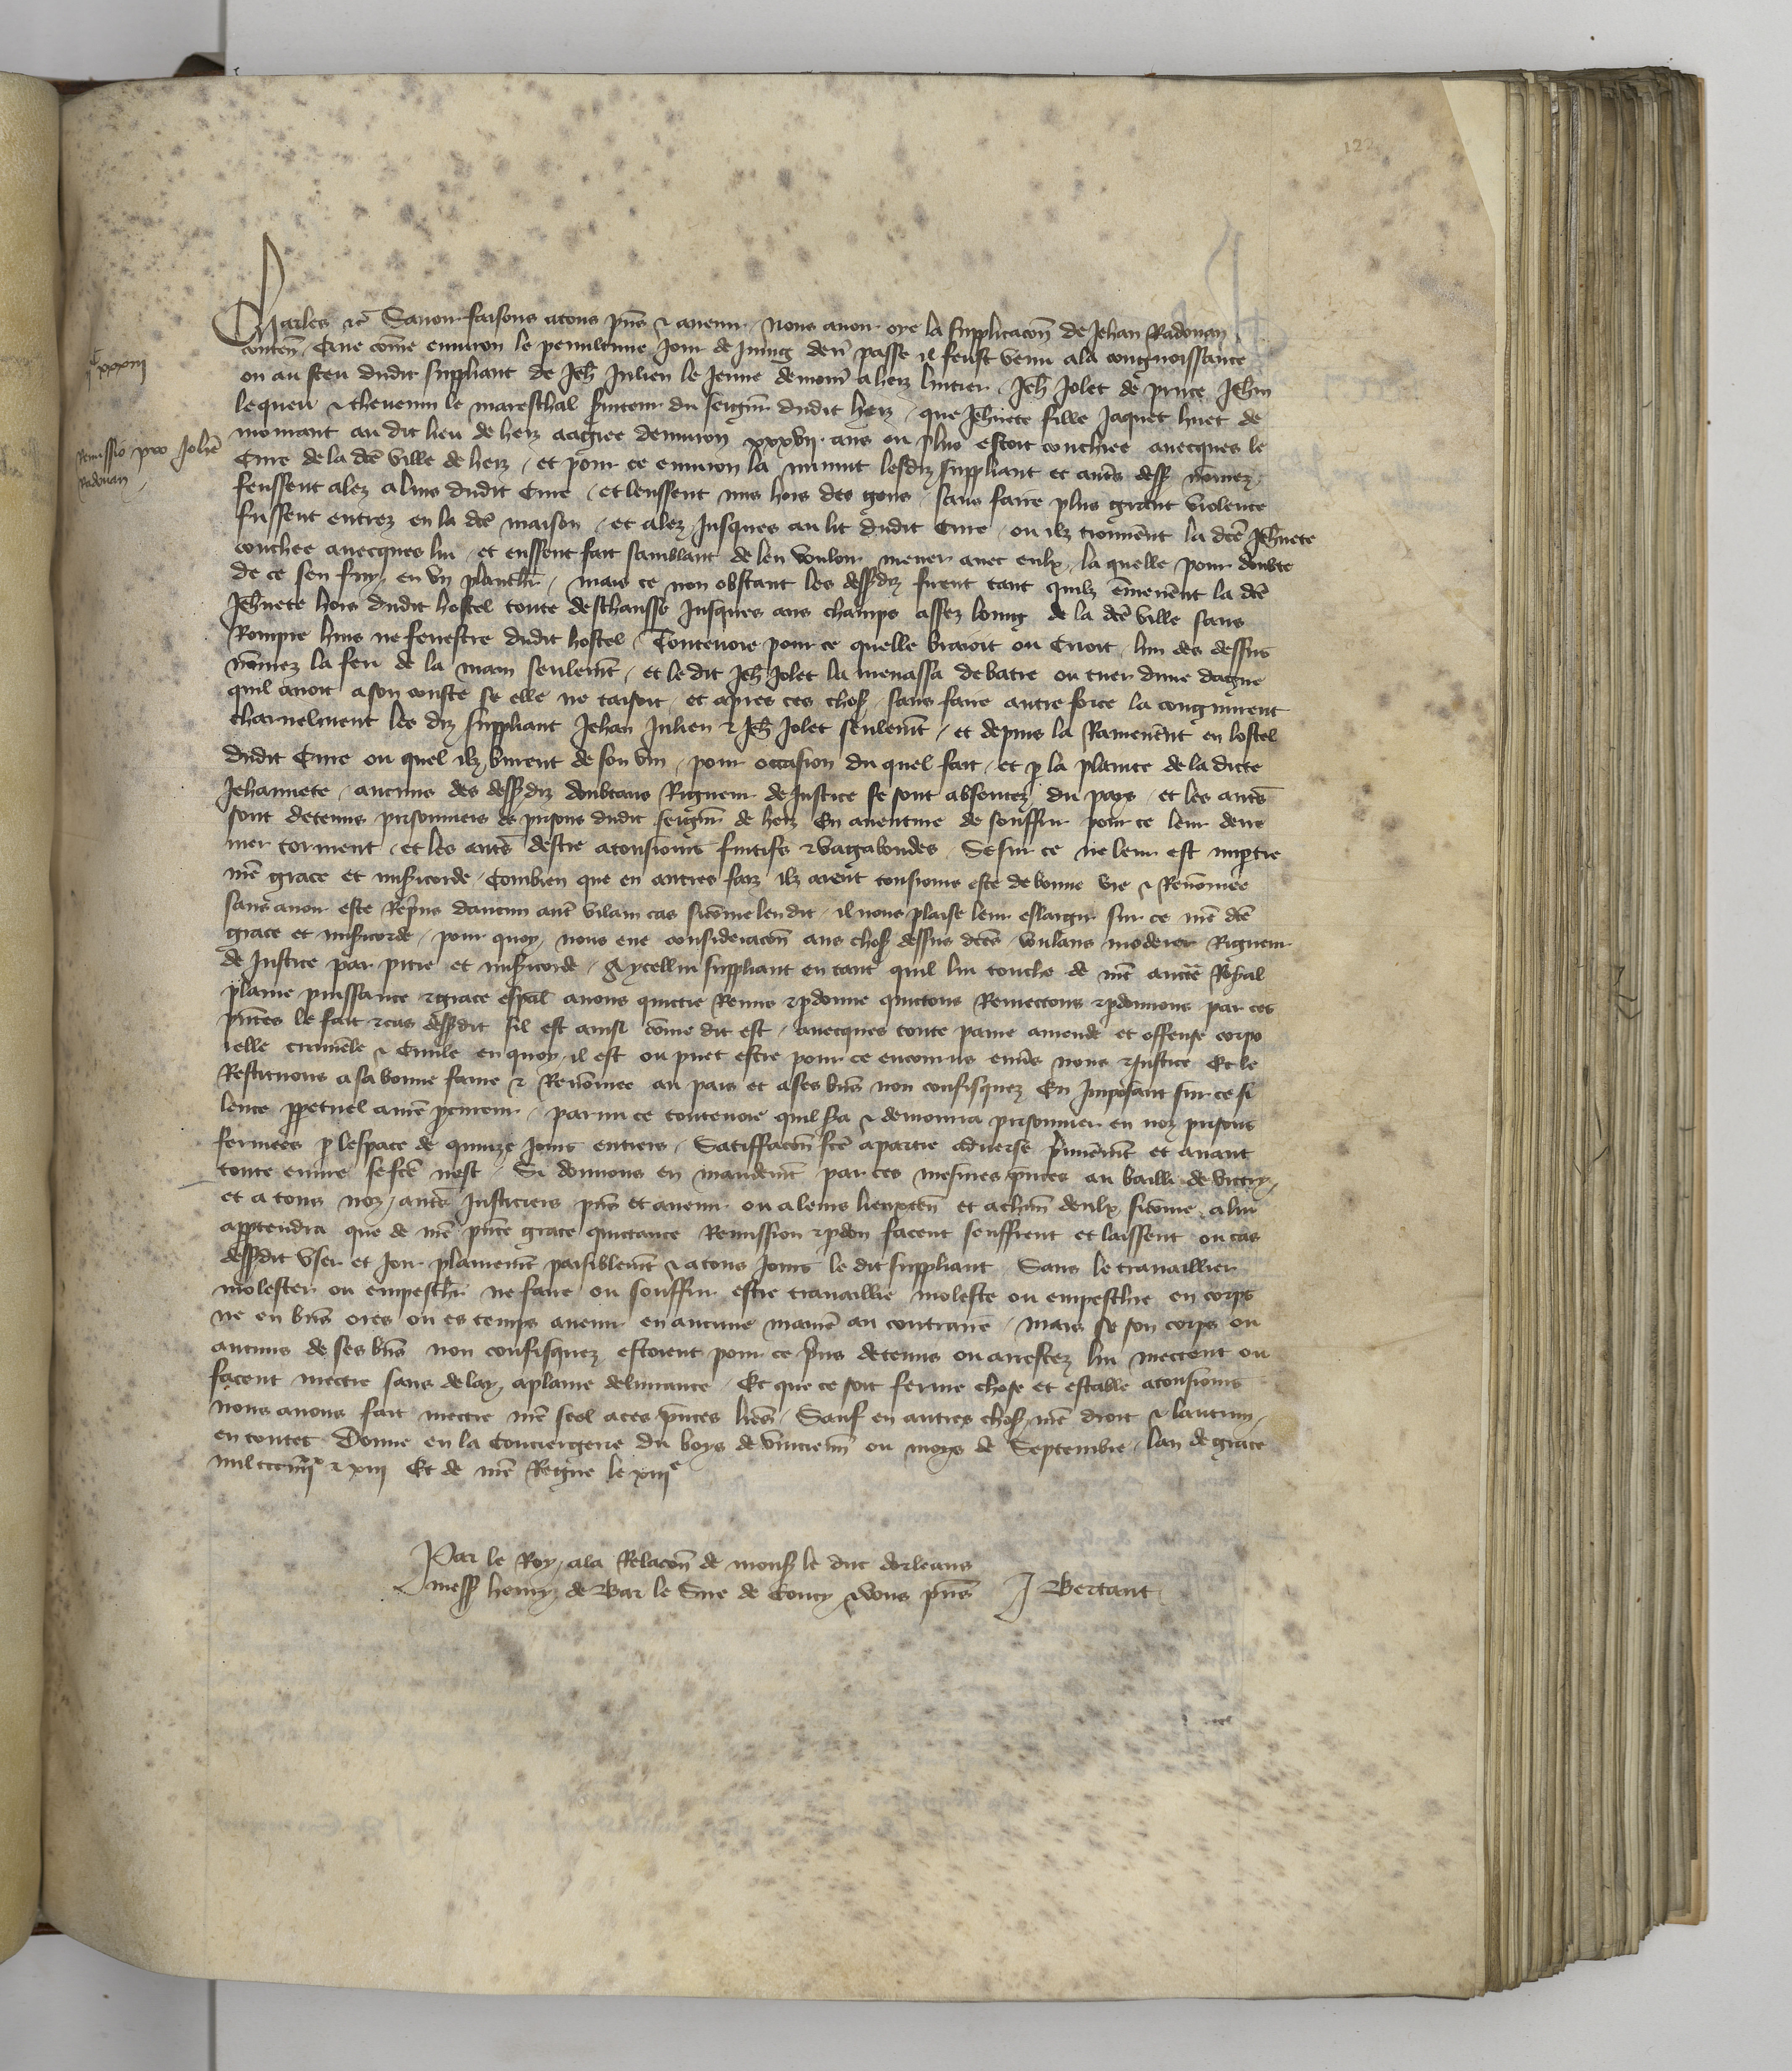 122
Charles etc Savoir faisons a tous pñs & avenir Nous avoir oye la supplicacõn de Jehan Radouan
conteñ Que cõme environ le penultime jour de juing derñ passe il feust venu a la congnoissance
ou au sceu dudit suppliant de Jeh Julien le Jeune demoũ a herz luitier Jeh Jolet de prince Jehin
lequeu & thevenin le mareschal serviteur du seigñr dudit herz que Jehñete fille Jaquet huet de
mourant au dit lieu de herz aagiee denviron xxxvij ans ou plus estoit couchiee avecques le
Cure de la dcẽ ville de herz et pour ce environ la minuit lesdiz suppliant et autẽs dessus nõmez
feussent alez a luis dudit Cure et leussent mis hors des gons sans faire plus grant violence
fussent entrez en la dcẽ maison et alez jusques au lit dudit Cure ou ilz trouverent la dcẽ Jehñete
couchee avecques lui et eussent fait samblant de len vouloir mener avec eulx la quelle pour doubte
de ce sen fuy en un planchr mais ce non obstant les dessdiz firent tant quilz ẽmenerent la dcẽ
Jehñete hors dudit hostel toute deschausse jusques aus champs assez loing de la dcẽ ville sans
Rompre huis ne fenestre dudit hostel Toutevoie pour ce quelle braioit ou crioit lun des dessus
nõmez la feri de la main seulemt et le dit Jeh Jolet la menassa de batre ou tuer dune dague
quil avoit a son couste se elle ne taisoit et apres ces choses sans faire autre force la congnurent
charnelment les diz suppliant Jehan Julien & Jeh Jolet seulemt et depuis la Ramenerent en lostel
dudit Cure ou quel ilz burent de son vin pour occasion du quel fait et p la plainte de la dicte
Jehannete aucuns des dessdiz doubtans Rigueur de Justice se sont absentez du pays et les autẽs
sont detenus prisonniers es prisons dudit seigñr de herz En aventure de souffrir pour ce leur derre
nier torment et les autẽs destre a tousiours fuitifs & vagabondes Se sur ce ne leur est impartie
nrẽ grace et misericorde Combien que en autres faiz ilz aient tousiours este de bonne vie & Renõmee
sans avoir este Repris daucun autẽ vilain cas sicõme len dit il nous plaise leur eslargir sur ce nrẽ dcẽ
grace et misericorde pour quoy nous eue consideracõn aus choses dessus dcẽs voulans moderer Rigueur
de Justice par pitie et misericorde A ycellui suppliant en tant quil lui touche de nrẽ auctẽ Royal
plaine puissance & grace especal avons quictie Remis & pdonne quictons Remectons & pdonnons par ces
pñtes le fait & cas dessdit sil est ainsi cõme dit est avecques toute paine amende et offense corpo
relle criminele & Civile en quoy il est ou puet estre pour ce encouru envs nous & Justice Et le
Restituons a sa bonne fame & Renõmee au pais et a ses bñs non confisquez En Imposant sur ce si
lence ppetuel a nrẽ pcureur parmi ce toutevoie quil sera & demourra prisonnier en noz prisons
fermees p lespace de quinze jours entiers Satiffacõn fcẽ a partie adverse premieremt et avant
toute euvre se fcẽ nest Si donnons en mandemt par ces mesmes pñtes au bailli de victry
et a tous noz autẽs Justiciers pñs et avenir ou a leurs lieuxteñ et a chñn deulx sicõme a lui
appartendra que de nrẽ pñte grace quictance Remission & pdon facent seuffrent et laissent ou cas
dessdit user et joir plainemt paisiblemt & a tous jours le dit suppliant Sans le travaillier
molester ou empeschr ne faire ou souffrir estre travaillie moleste ou empeschie en corps
ne en bñs ores ou es temps avenir en aucune manẽ au contraire mais se son corps ou
aucuns de ses bñs non confisquez estoient pour ce pris detenus ou arrestez lui mectent ou
facent mectre sans delay a plaine delivrance Et que ce soit ferme chose et estable a tousiours
nous avons fait mectre nrẽ scel a ces pñtes lrẽs Sauf en autres choses nrẽ droit & lautruy
en toutes Donne en la Conciergerie du boys de vincieñ ou moys de Septembre lan de grace
mil ccc iiijxx & xiij Et de nrẽ Regne le xiije
Par le Roy a la Relacõn de monsr le duc dorleans
mess henry de Bar le Sire de Coucy & vous pñs J Bertaut
ijc xxxiij
Remissio pro Johẽ
Radouan